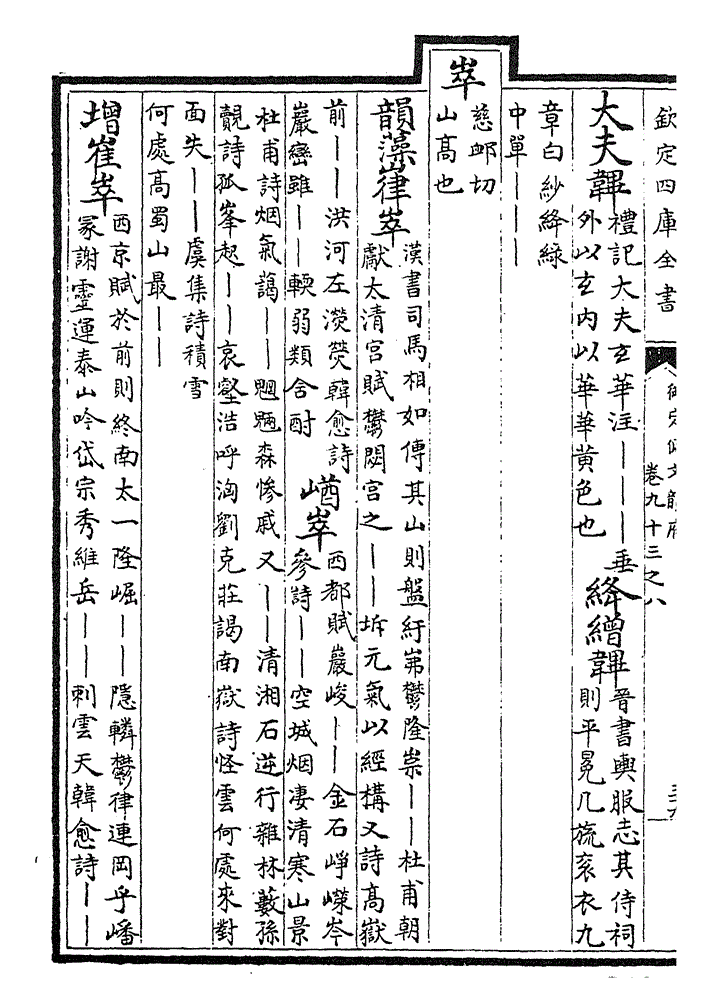 欽定四庫全書
卷九十三之八
大夫韠
禮記大夫玄華注｜｜｜垂
外以玄内以華華黃色也
絳繒韠
晉書輿服志其侍祠
則平冕九旒衮衣九
章白紗絳緣
中單｜｜｜
崒
慈䘏切
山高也
韻藻嵂崒
漢書司馬相如傳其山則盤紆岪鬱隆崇｜｜杜甫朝
獻太清宫賦鬱閟宫之｜｜坼元氣以經構又詩高嶽
前｜｜洪河左瀠熒韓愈詩
巖巒雖｜｜輭弱類含酎
崷崒
西都賦巖峻｜｜金石崢嶸岑
參詩｜｜空城烟凄清寒山景
杜甫詩烟氣藹｜｜魍魎森慘戚又｜｜清湘石逆行雜林藪孫
覿詩孤峯起｜｜哀壑浩呼洶劉克莊謁南嶽詩怪雲何處來對
面失｜｜虞集詩積雪
何處高蜀山最｜｜
增崔崒
西京賦於前則終南太一隆崛｜｜隱轔鬱律連岡乎嶓
冢謝靈運泰山吟岱宗秀維岳｜｜刺雲天韓愈詩｜｜